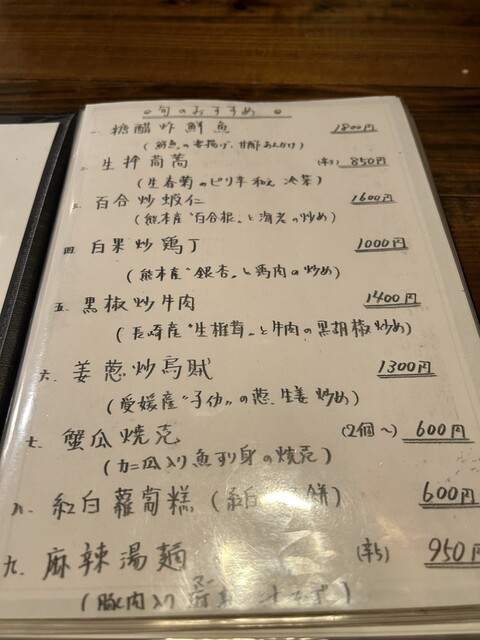 旬のおすすめ
一. 糖醋炸鮮魚 1800円
(鮮魚の唐揚げ、甘酢あんかけ)
二. 生拌茼蒿 (辛) 850円
(生春菊のピリ辛和え 冷菜)
三. 百合炒蝦仁 1600円
(熊本産"百合根"と海老の炒め)
四. 白果炒鶏丁 1000円
(熊本産"銀杏"と鶏肉の炒め)
五. 黒椒炒牛肉 1400円
(長崎産"生椎茸"と牛肉の黒胡椒炒め)
六. 姜葱炒烏賊 1300円
(愛媛産"子イカ"の葱、生姜 炒め)
七. 蟹瓜焼売 (2個〜) 600円
(カニ瓜入り魚すり身の焼売)
八. 紅白蘿蔔糕 (紅白 餅) 600円
九. 麻辣湯麺 (辛5) 950円
(豚肉入り